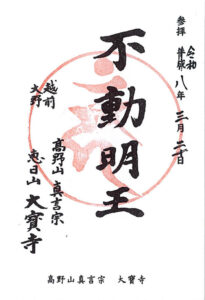 参拝
令和
八年 三月
不動明王
越前
大野
高野山真言宗
恵日山 大寶寺
高野山真言宗 大寶寺